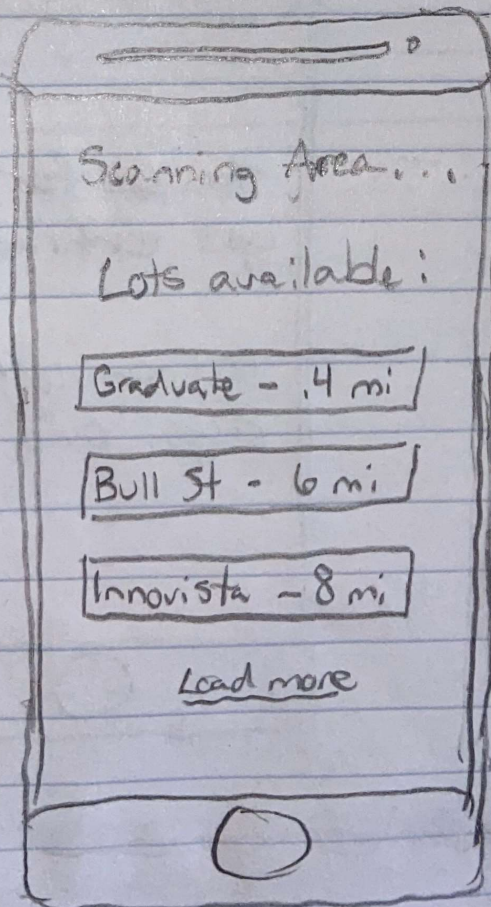 Scanning Area...
Lots available:
Graduate - .4 mi
Bull St - 6 mi
Innovista - 8 mi
Load more